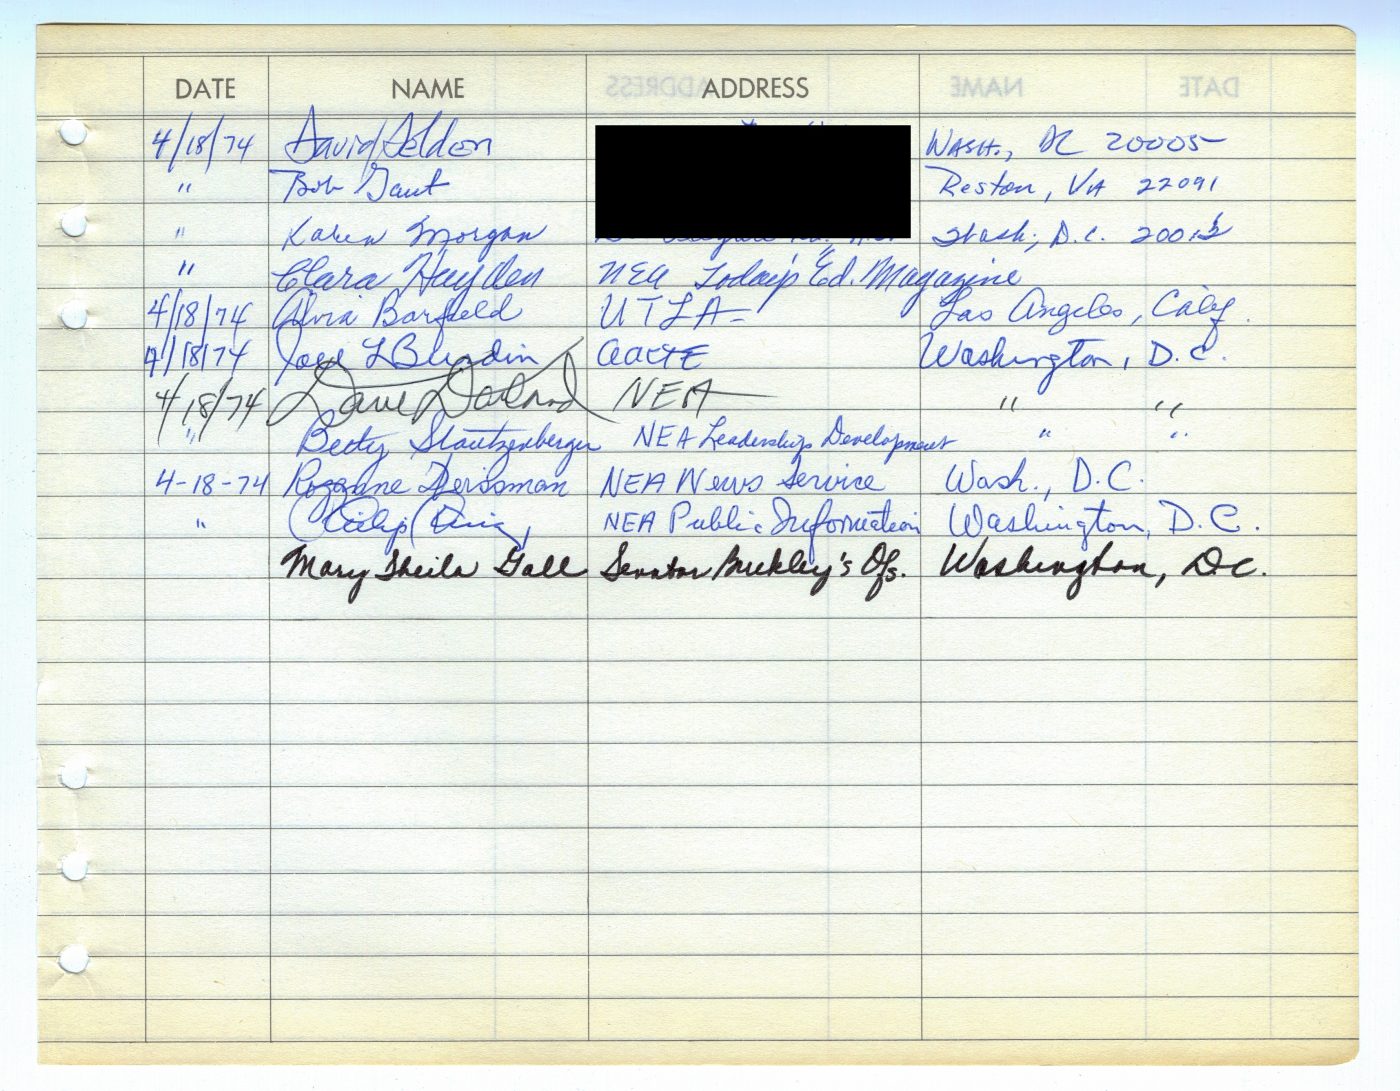 DATE NAME ADDRESS
4/18/74 David Selden Wash., DC 20005
" Bob Gaut Reston, VA 22091
" Karen Morgan Wash, D.C. 20015
" Clara Hayden NEA Today's Ed. Magazine
4/18/74 Alvia Barfield UTLA Los Angeles, Calif.
4/18/74 Joel L Burdin AACTE Washington, D.C.
4/18/74 Dave NEA " "
" Betty Stautzenberger NEA Leadership Development " "
4-18-74 Rozanne Weissman NEA News Service Wash., D.C.
" NEA Public Information Washington, D.C.
Mary Sheila Gall Senator Buckley's Ofs. Washington, DC.